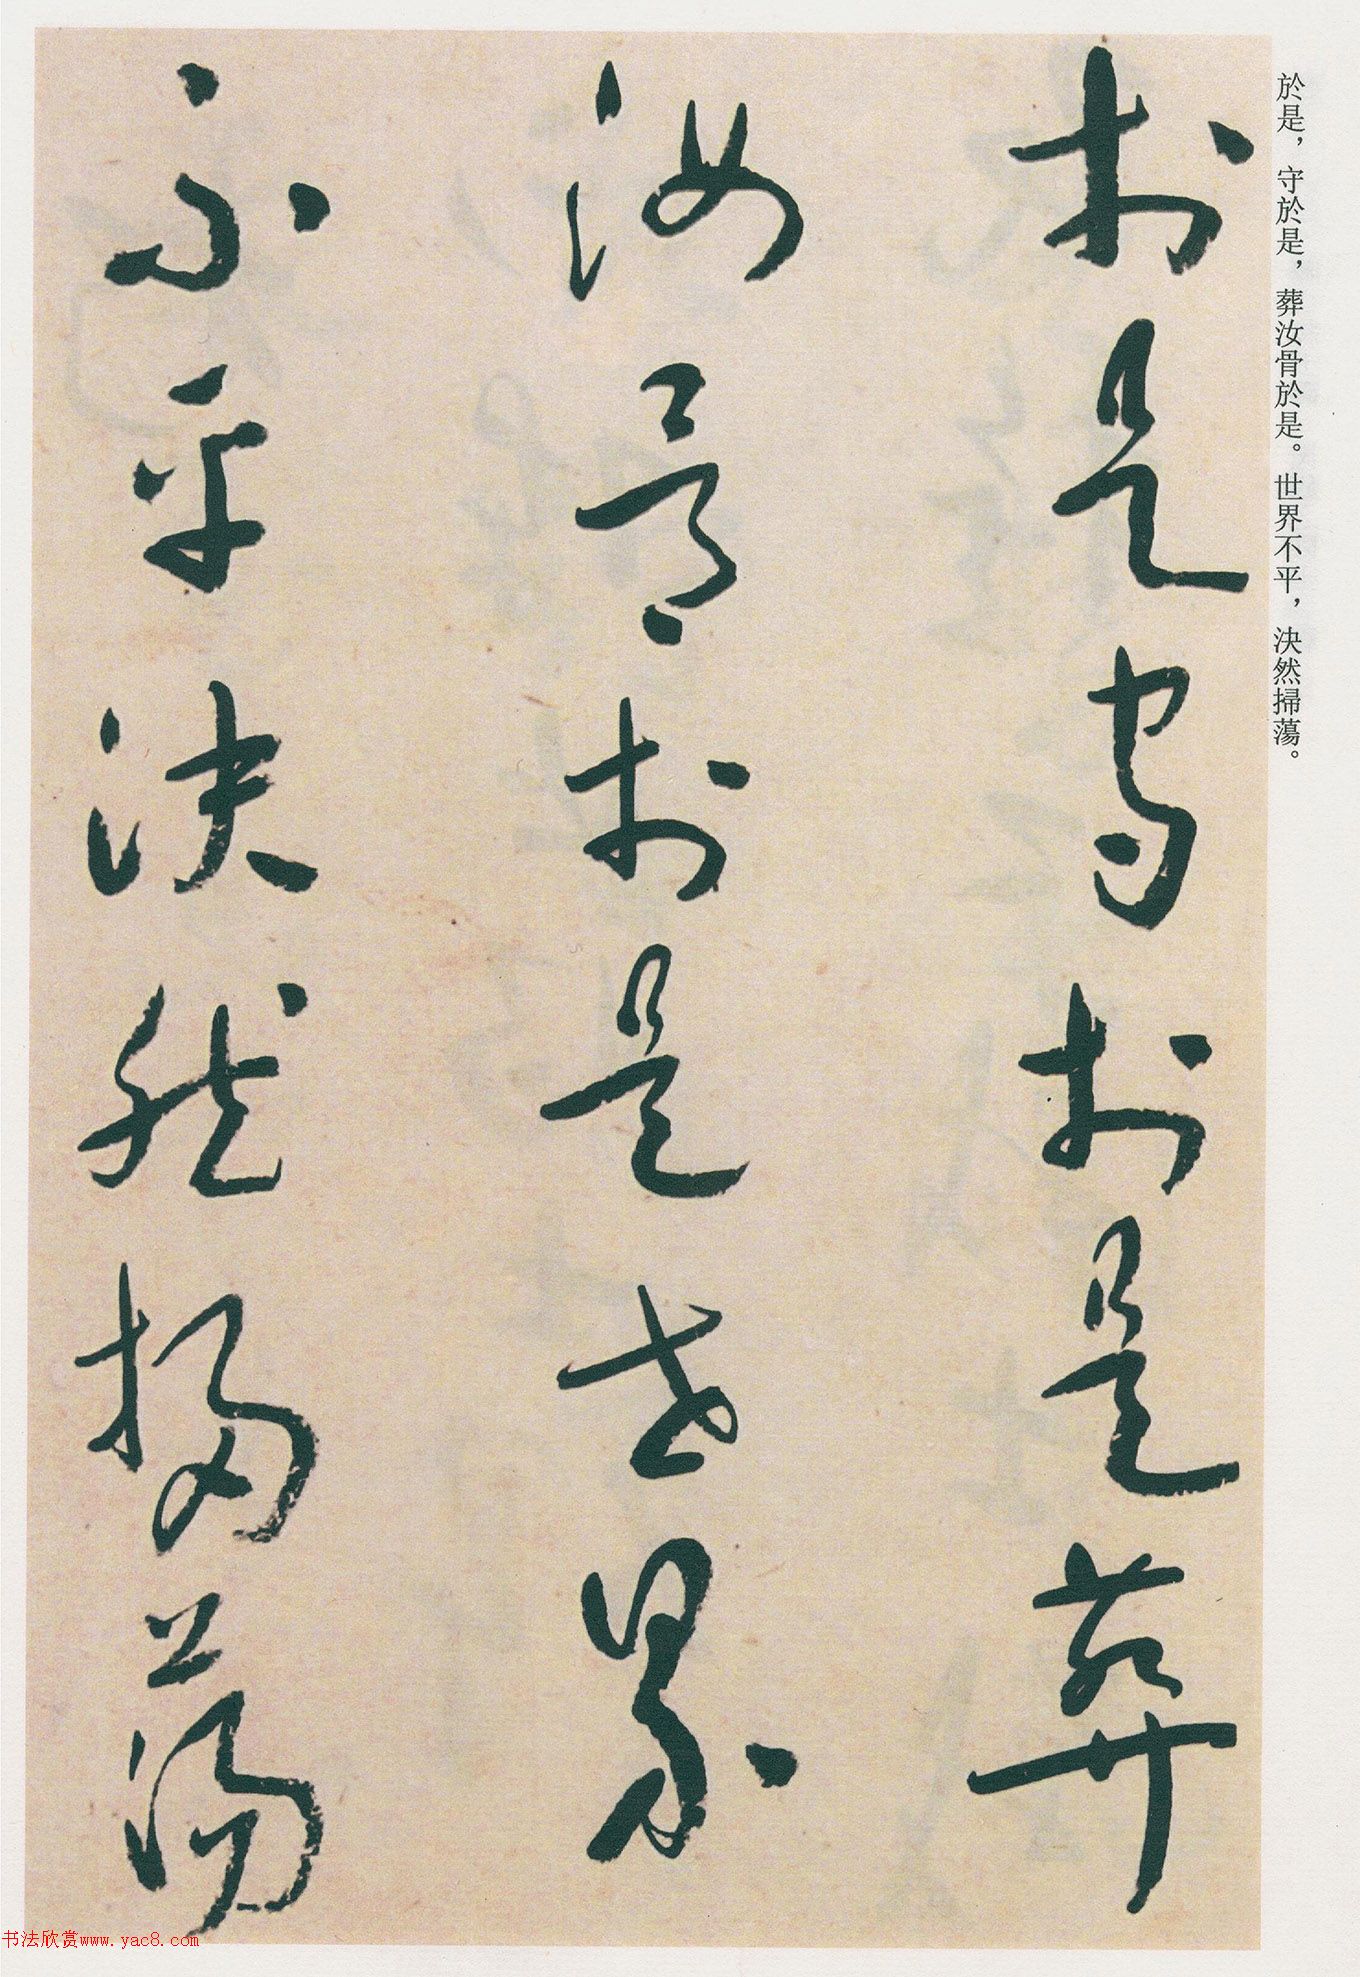 於是，守於是，葬汝骨於是。世界不平，決然掃蕩。
於是守於是葬
汝骨於是世界
不平決然掃蕩
书法欣赏www.yac8.com